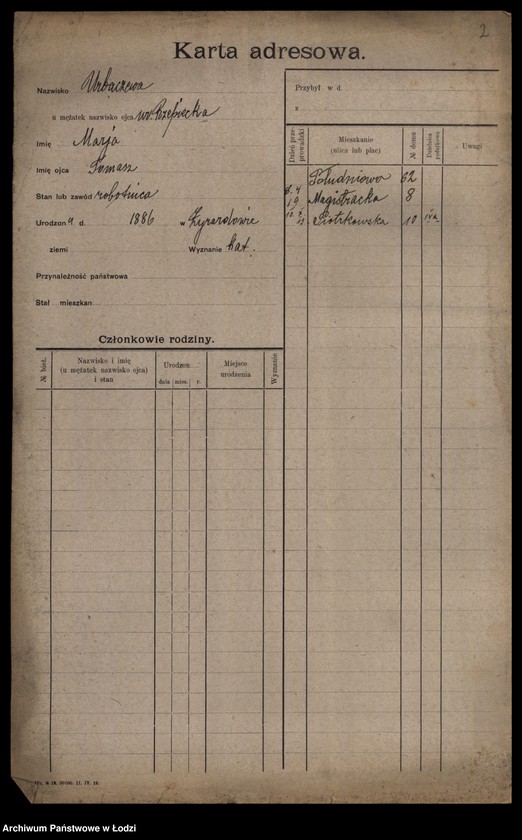 2
Karta adresowa.
Nazwisko Urbaczewa
u mężatek nazwisko ojca
Imię Marja
Imię ojca Tomasz
Stan lub zawód robotnica
Urodzona d. 1886 w Żyrardowie
ziemi Wyznanie kat.
Przynależność państwowa
Stał mieszkan
Przybył w d.
z
Dzień przeprowadzki
Mieszkanie
(ulica lub plac)
№ domu
Dzielnica podatkowa
Uwagi
Południowa 62
8. 4 19 Magistracka 8
Piotrkowska 10 IVa
Członkowie rodziny.
№ bież.
Nazwisko i imię
(u mężatek nazwisko ojca)
i stan
Urodzon
dnia mies. r.
Miejsce
urodzenia
Wyznanie
Archiwum Państwowe w Łodzi